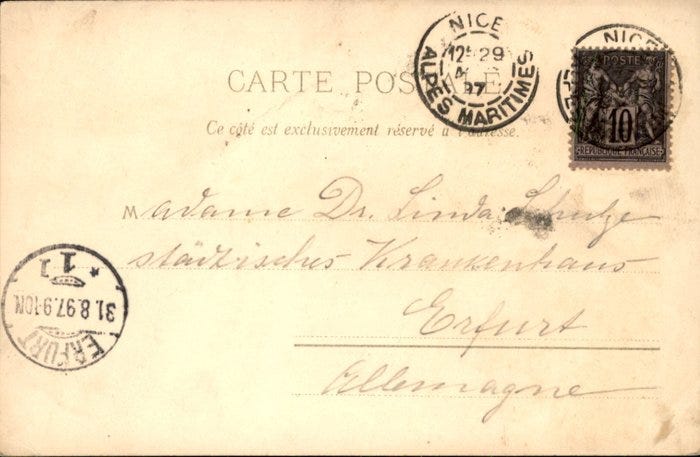 NICE
12E 29
97
ALPES MARITIMES
NICE
POSTE
10
REPUBLIQUE FRANÇAISE
CARTE POSTALE
Ce côté est exclusivement réservé à l'adresse.
Madame Dr. Linda Schulze
städtisches Krankenhaus
Erfurt
Allemagne
ERFURT
31.8.97.9-10N.
* 1 1